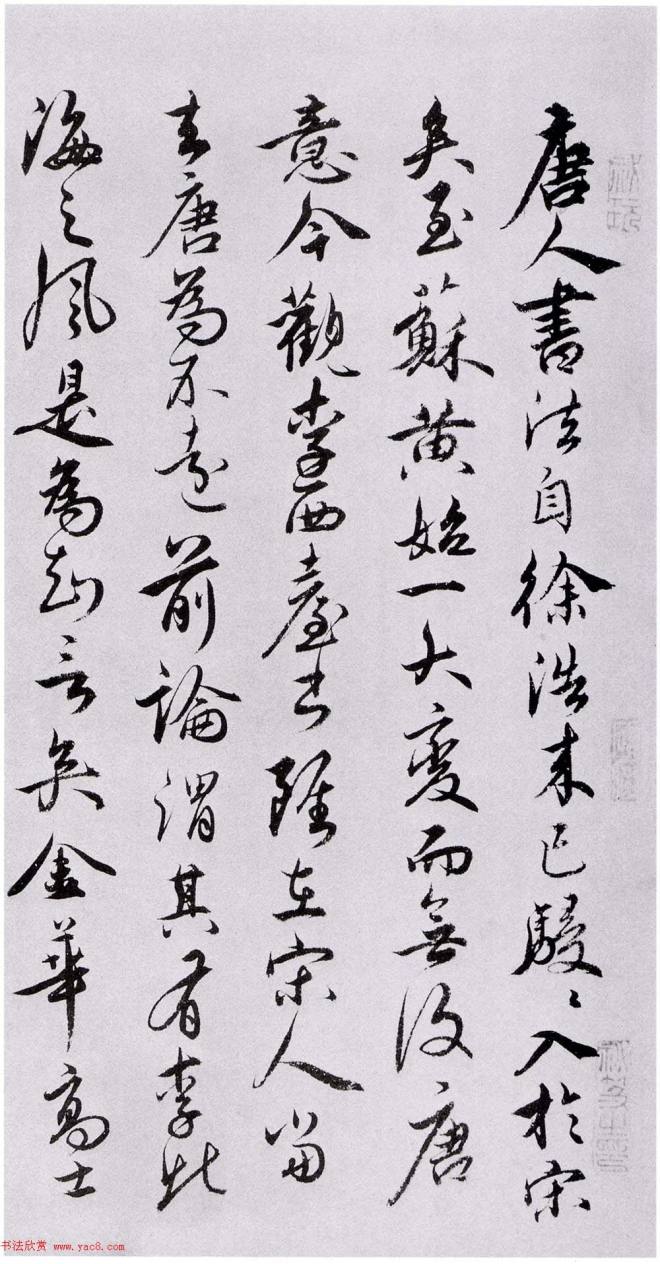 唐人書法自徐浩来已駸〻入於宋
矣至蘇黄始一大變而無復唐
意今觀李西臺書雖在宋人當
去唐為不遠前論謂其有李北
海之風是為知言矣金華高士
书法欣赏 www.yac8.com